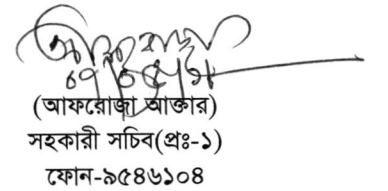 (আফরোজা আক্তার)
সহকারী সচিব(প্রঃ-১)
ফোন-৯৫৪৬১০৪